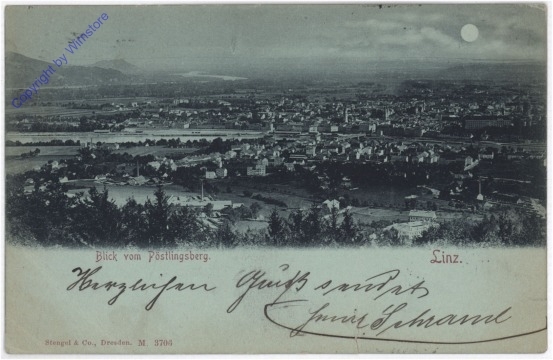 copyright by Wimstore
Blick vom Pöstlingsberg.
Linz.
Herzlichen Gruß sendet
Schraml
Stengel & Co., Dresden. M. 3706